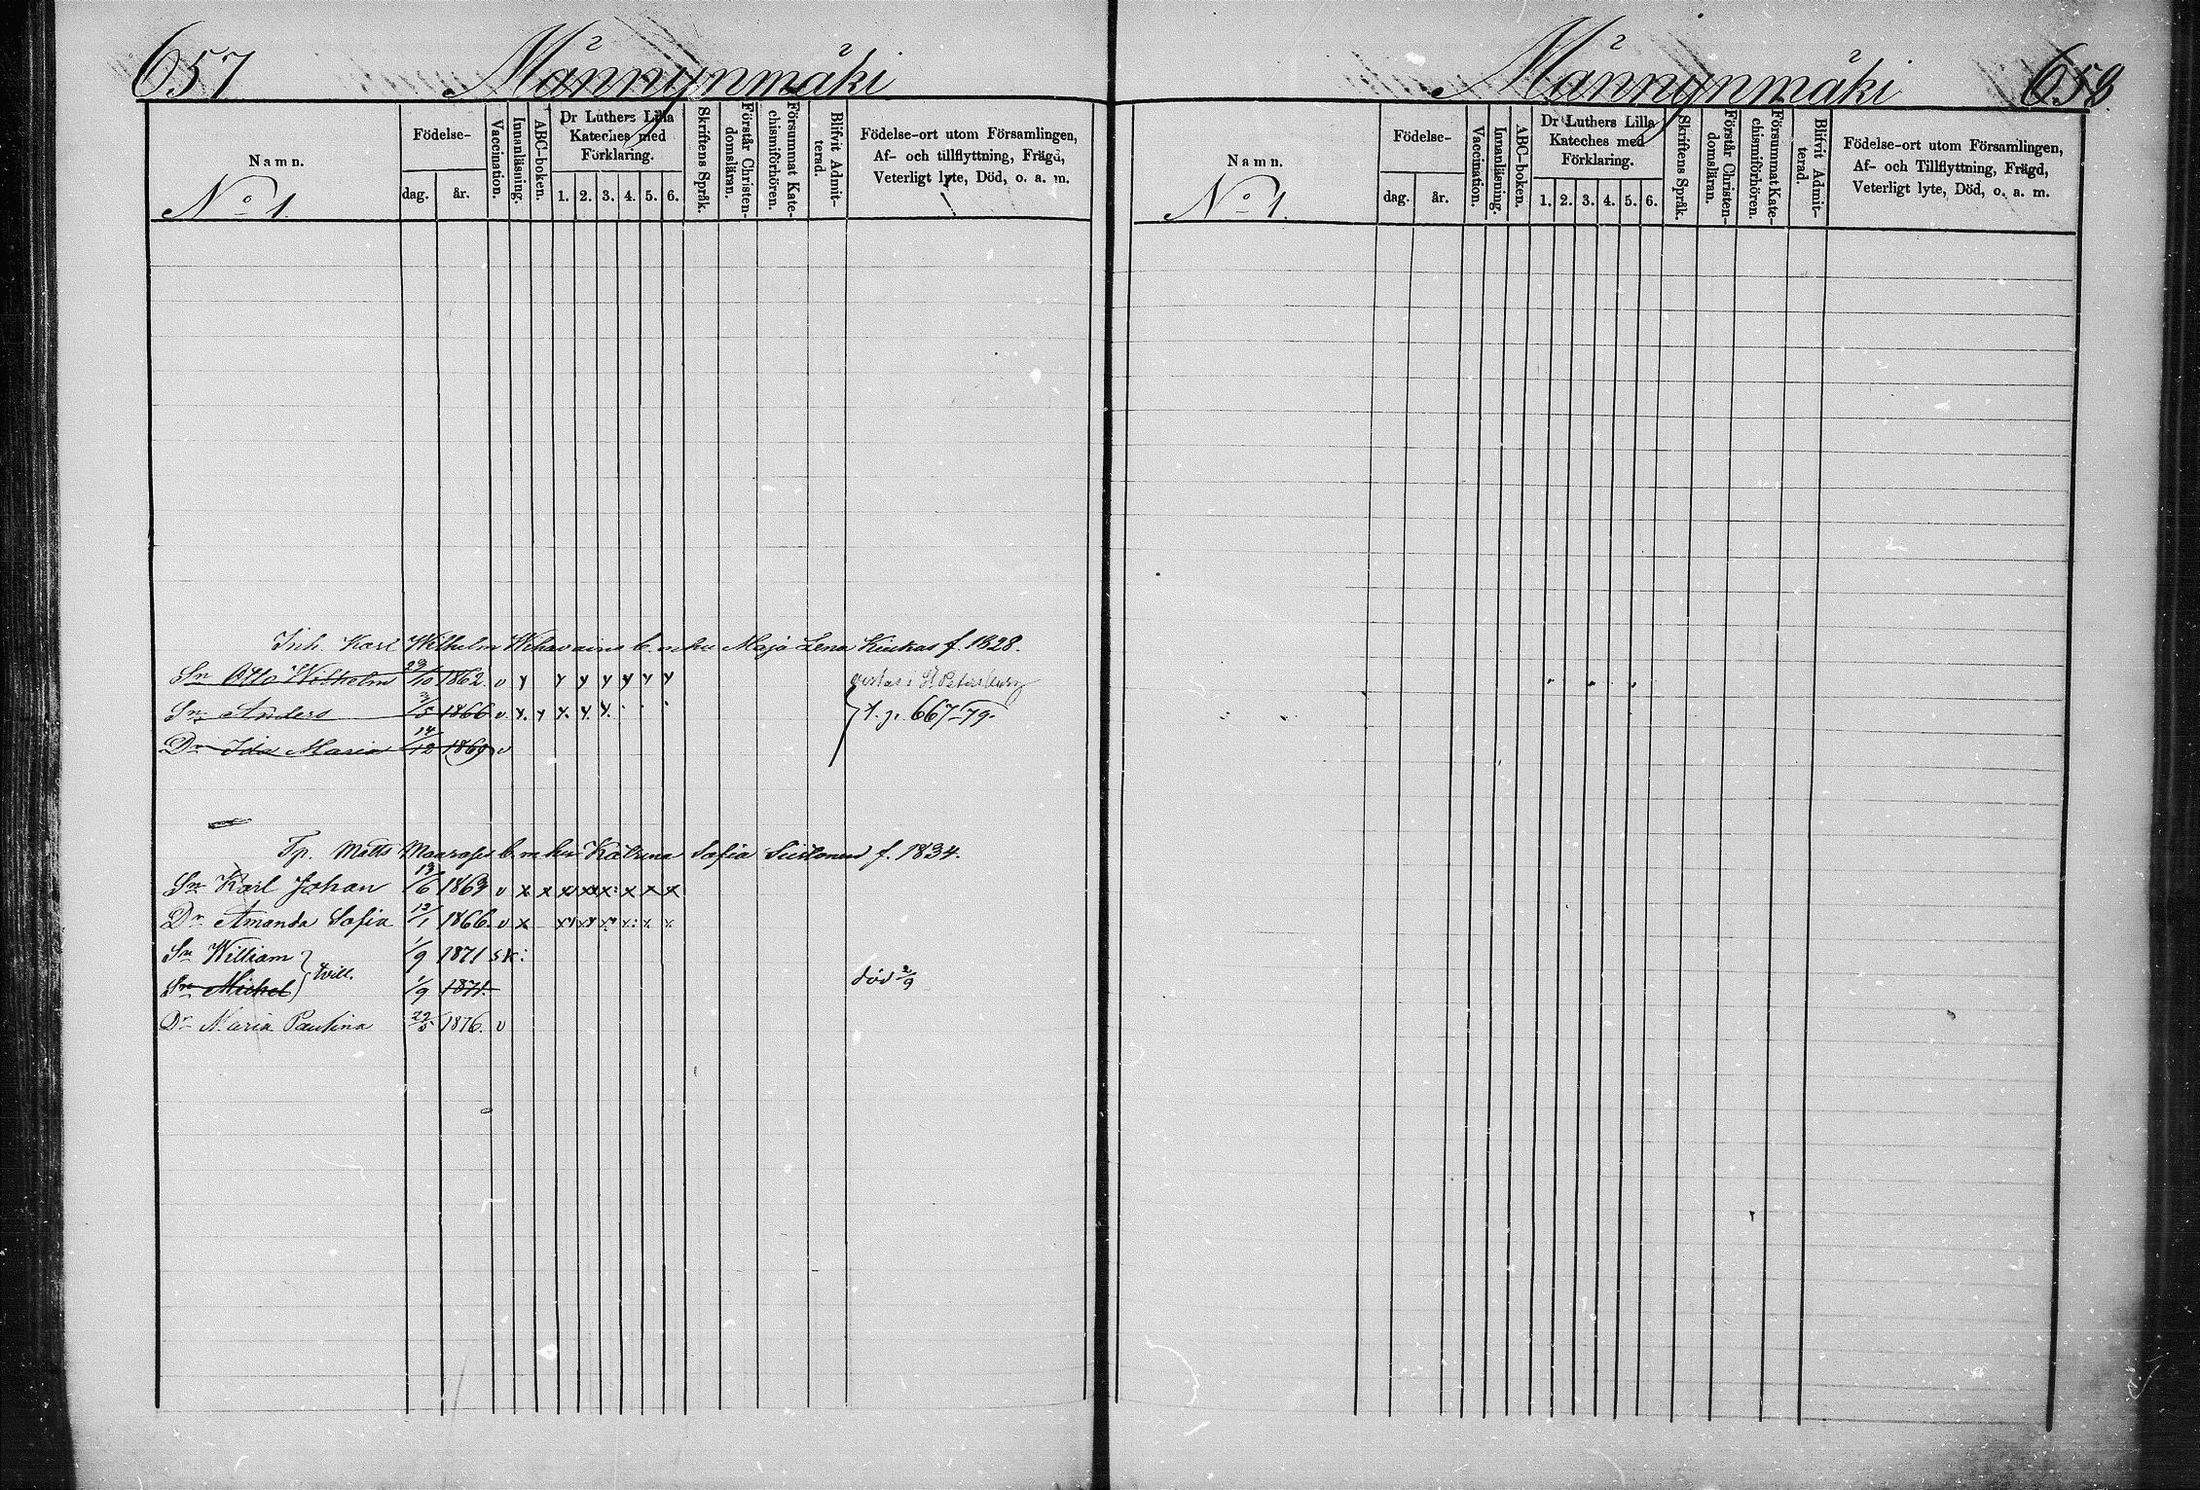 657 Männynmäki
Namn.
No 1.
Födelse-
dag. år.
Vaccination.
Innanläsning.
ABC-boken.
Dr Luthers Lilla
Kateches med
Förklaring.
1. 2. 3. 4. 5. 6.
Skriftens Språk.
Förstår Christen-
domsläran.
Försummat Kate-
chismiförhören.
Blifvit Admit-
terad.
Födelse-ort utom Församlingen,
Af- och tillflyttning, Frägd,
Veterligt lyte, Död, o. a. m.
Inh. Karl Wilhelm b. m hu Maja Lena Kiukas f. 1828.
Sn Otto Wilhelm 29/10 1862. v y y y y y y y vistas i St Petersburg
Sn Anders /5 1866 v. y. y y. y. y. } t. p. 667-79.
Dr Ida Maria 14/12 1869 v
Tp. Matts b. m hu Katrina Sofia f. 1834.
Sn Karl Johan 13/6 1863 v x x x x x x x x
Dr Amanda Sofia 12/1 1866. v x x x x x x x
Sn William } tvill. 1/9 1871 sk:
Sn Michel 1/9 1871. död 2/9
Dr Maria Paulina 22/5 1876. v
Männynmäki 658
Namn.
No 1.
Födelse-
dag. år.
Vaccination.
Innanläsning.
ABC-boken.
Dr Luthers Lilla
Kateches med
Förklaring.
1. 2. 3. 4. 5. 6.
Skriftens Språk.
Förstår Christen-
domsläran.
Försummat Kate-
chismiförhören.
Blifvit Admit-
terad.
Födelse-ort utom Församlingen,
Af- och Tillflyttning, Frägd,
Veterligt lyte, Död, o. a. m.